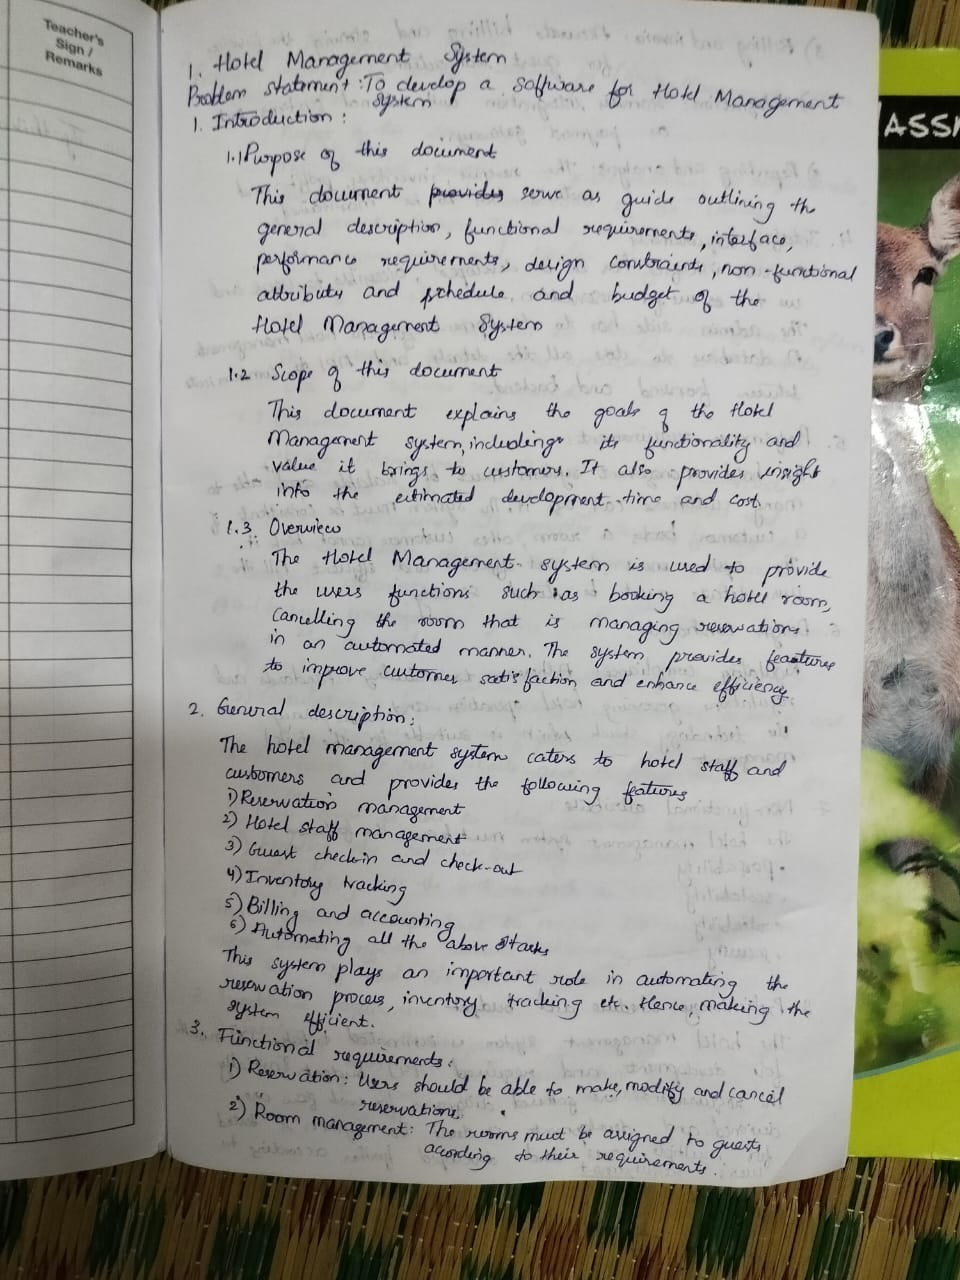 Teacher's
Sign /
Remarks
ASSI
1. Hotel Management System
Problem statement : To develop a software for Hotel Management
system
1. Introduction :
1.1 Purpose of this document
This document provides serve as guide outlining the
general description, functional requirements, interface,
performance requirements, design constraints, non-functional
attributes and schedule and budget of the
Hotel Management System
1.2 Scope of this document
This document explains the goals of the Hotel
Management system, including its functionality and
value it brings to customers. It also provides insight
into the estimated development time and cost.
1.3 Overview
The Hotel Management system is used to provide
the users functions such as booking a hotel room,
cancelling the room that is managing reservations
in an automated manner. The system provides features
to improve customer satisfaction and enhance efficiency.
2. General description :
The hotel management system caters to hotel staff and
customers and provides the following features
1) Reservation management
2) Hotel staff management
3) Guest checkin and check-out
4) Inventory tracking
5) Billing and accounting
6) Automating all the above tasks
This system plays an important role in automating the
reservation process, inventory tracking etc. Hence, making the
system efficient.
3. Functional requirements :
1) Reservation : Users should be able to make, modify and cancel
reservations.
2) Room management : The rooms must be assigned to guests
according to their requirements.